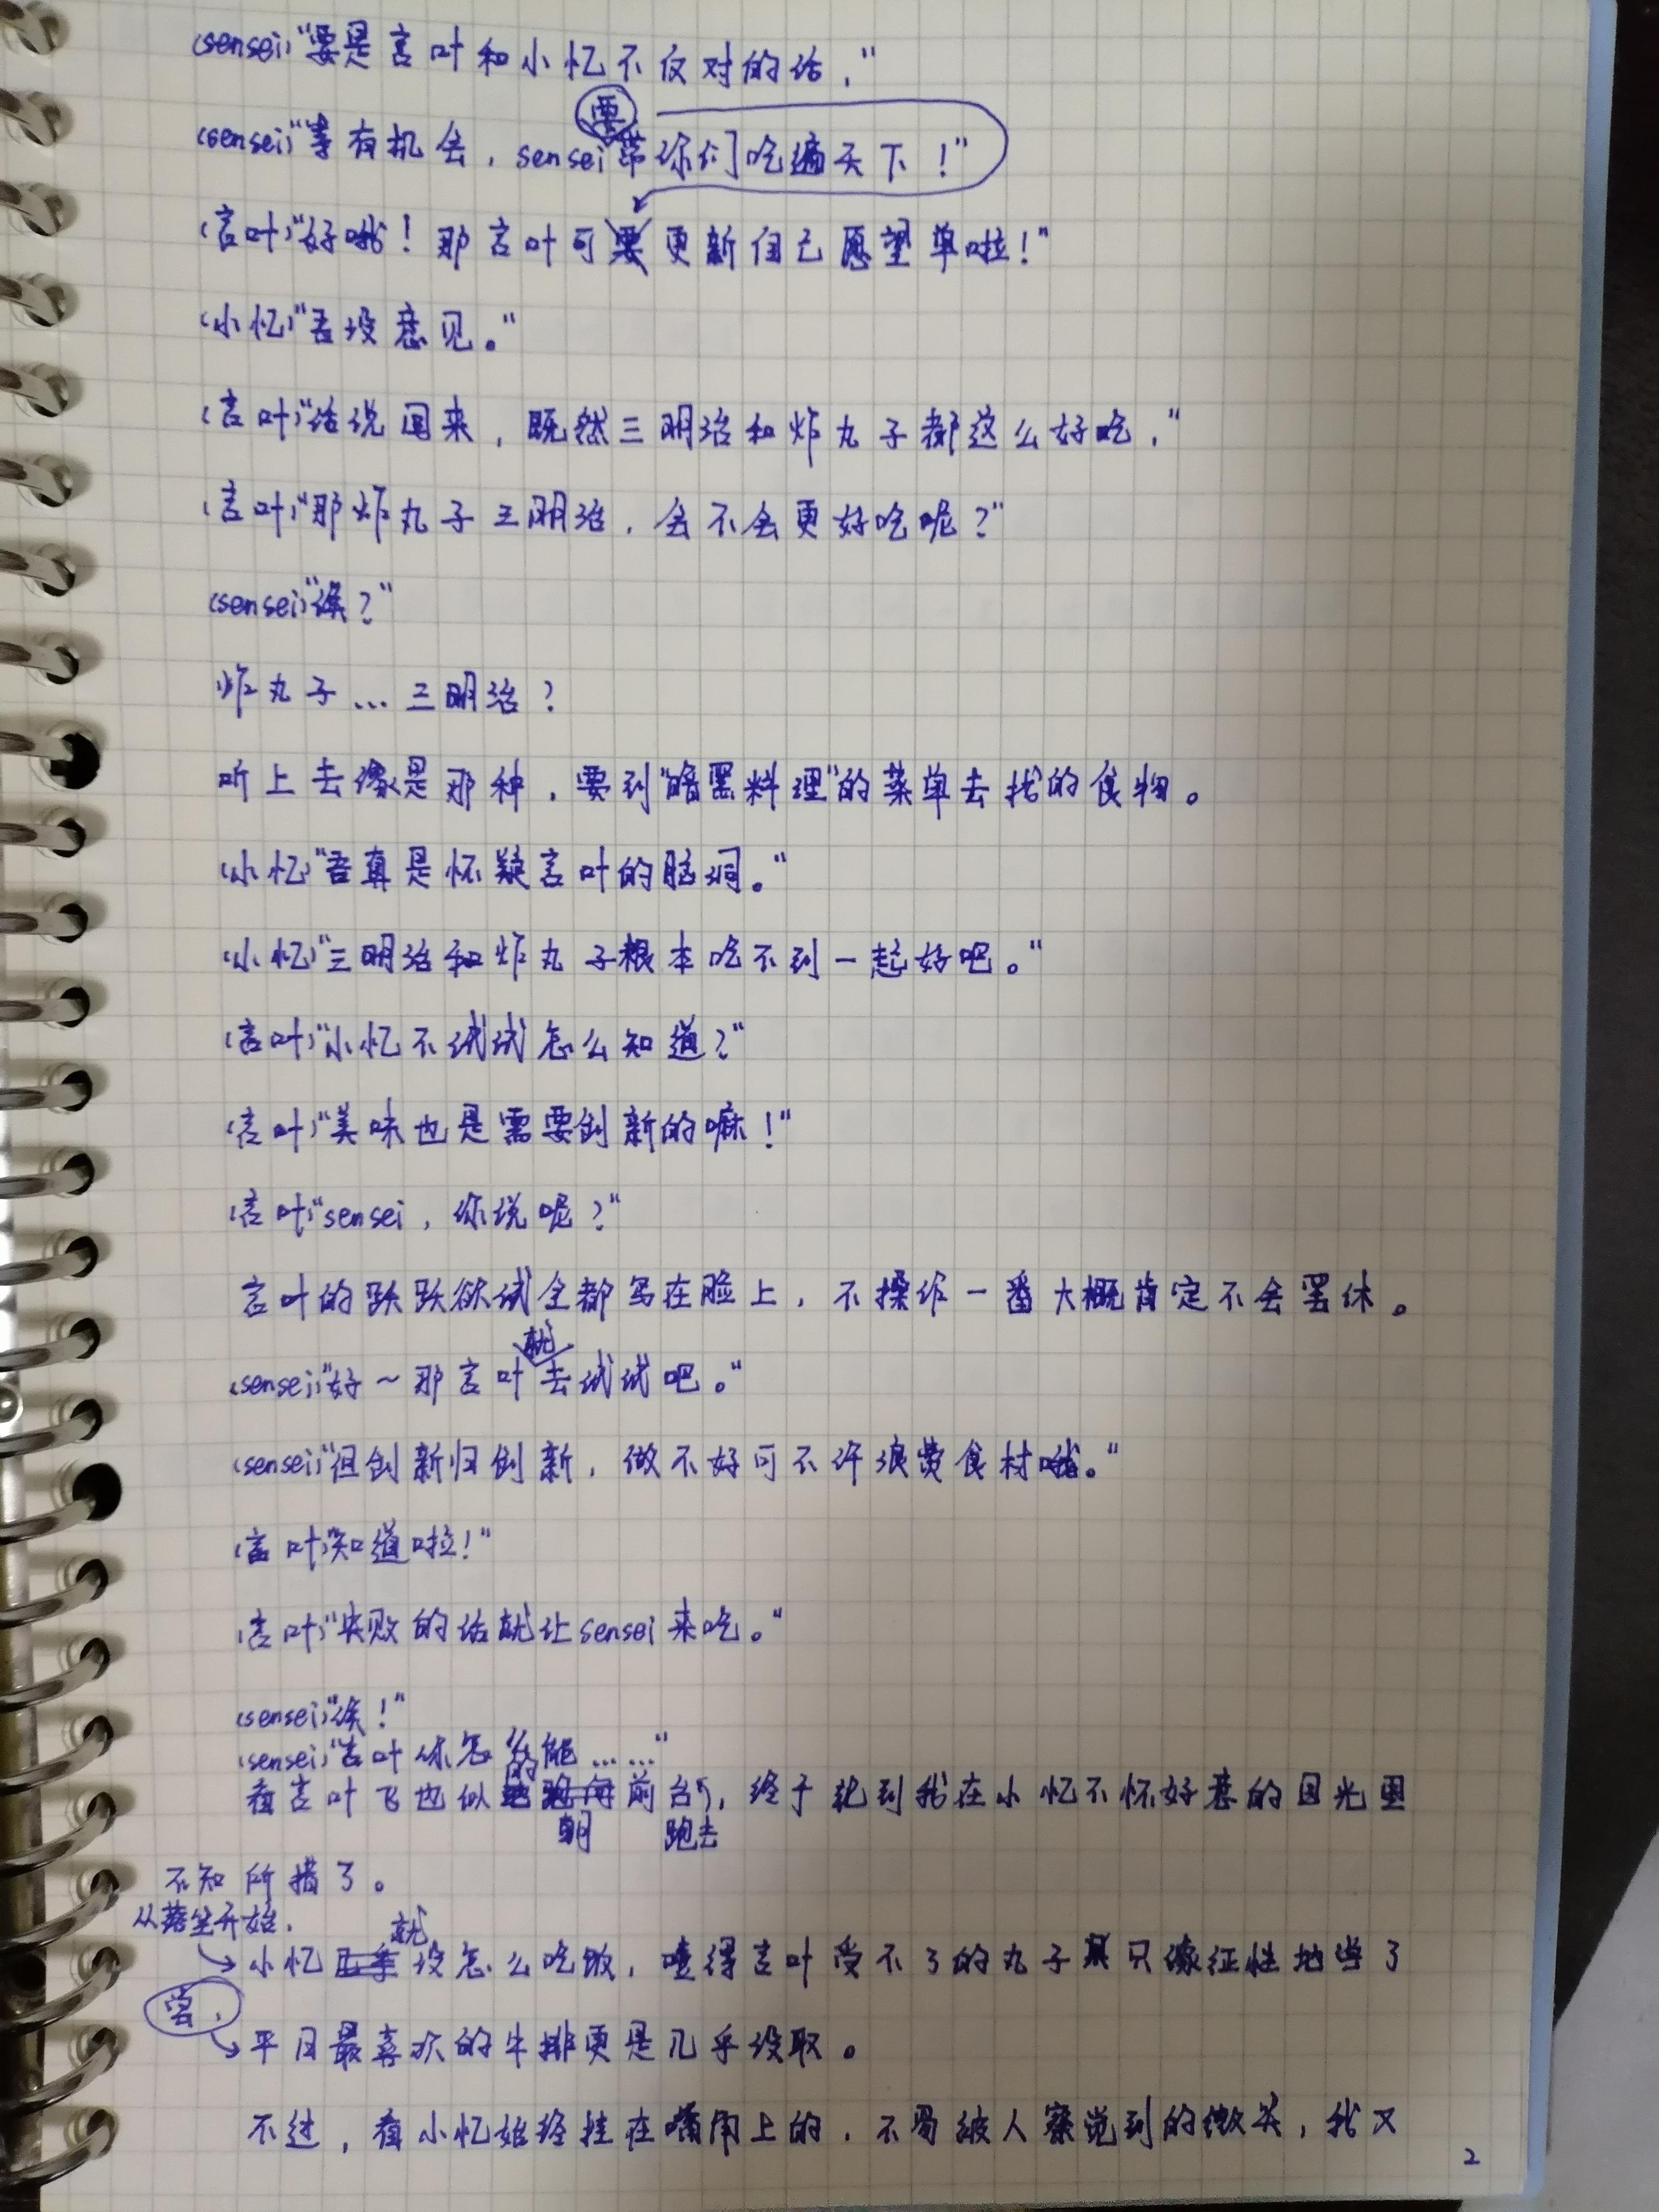 (sensei)"要是言叶和小忆不反对的话，"
要
(sensei)"等有机会，sensei带你们吃遍天下！"
(言叶)"好哦！那言叶可要更新自己愿望单啦！"
(小忆)"吾没意见。"
(言叶)"话说回来，既然三明治和炸丸子都这么好吃，"
(言叶)"那炸丸子三明治，会不会更好吃呢？"
(sensei)"诶？"
炸丸子…三明治？
听上去像是那种，要到"暗黑料理"的菜单去找的食物。
(小忆)"吾真是怀疑言叶的脑洞。"
(小忆)"三明治和炸丸子根本吃不到一起好吧。"
(言叶)"小忆不试试怎么知道？"
(言叶)"美味也是需要创新的嘛！"
(言叶)"sensei，你说呢？"
言叶的跃跃欲试全都写在脸上，不操作一番大概肯定不会罢休。
就
(sensei)"好～那言叶去试试吧。"
(sensei)"但创新归创新，做不好可不许浪费食材哦。"
(言叶)"知道啦！"
(言叶)"失败的话就让sensei来吃。"
(sensei)"诶！"
(sensei)"言叶你怎么能……"
的
看言叶飞也似地跑向前台，终于轮到我在小忆不怀好意的目光里
朝 跑去
不知所措了。
从落坐开始，
就
小忆没怎么吃饭，馋得言叶受不了的丸子只像征性地尝了
尝，
平日最喜欢的牛排更是几乎没取。
不过，看小忆始终挂在嘴角上的，不易被人察觉到的微笑，我又
2